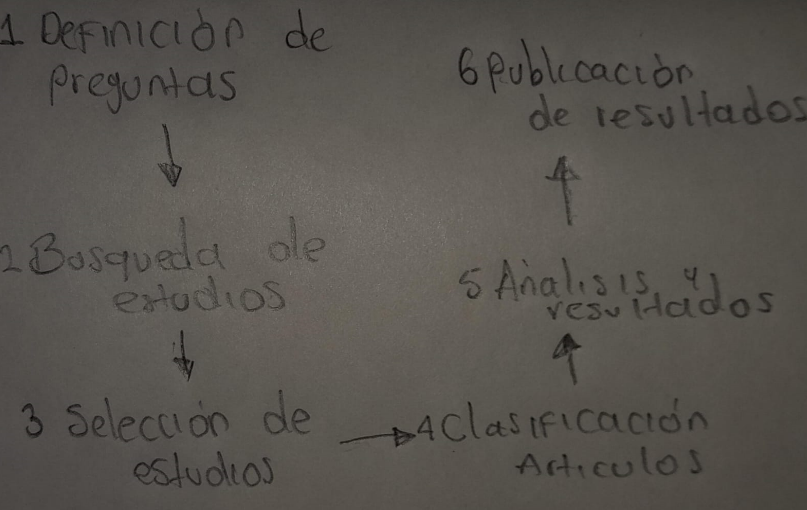 1 Definición de
preguntas
2 Busqueda de
estudios
3 Selección de
estudios
4 Clasificación
Articulos
5 Analisis y
resultados
6 Publicación
de resultados